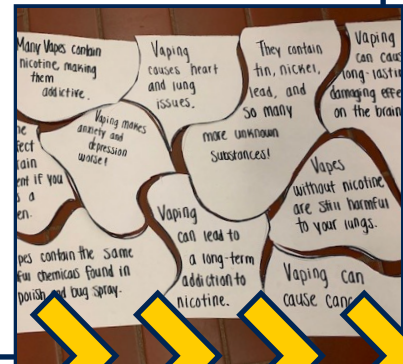 Many Vapes contain
nicotine making
them
addictive.
Vaping
causes heart
and lung
issues.
They contain
tin, nickel,
lead, and
so many
more unknown
substances!
Vaping
can
long-lasti
damaging effe
on the brain
Vaping makes
anxiety and
depression
worse!
ent if you
a
en.
Vapes
without nicotine
are still harmful
to your lungs.
pes contain the same
ful chemicals found in
polish and bug spray.
Vaping
can lead to
a long-term
addiction to
nicotine.
Vaping can
cause canc